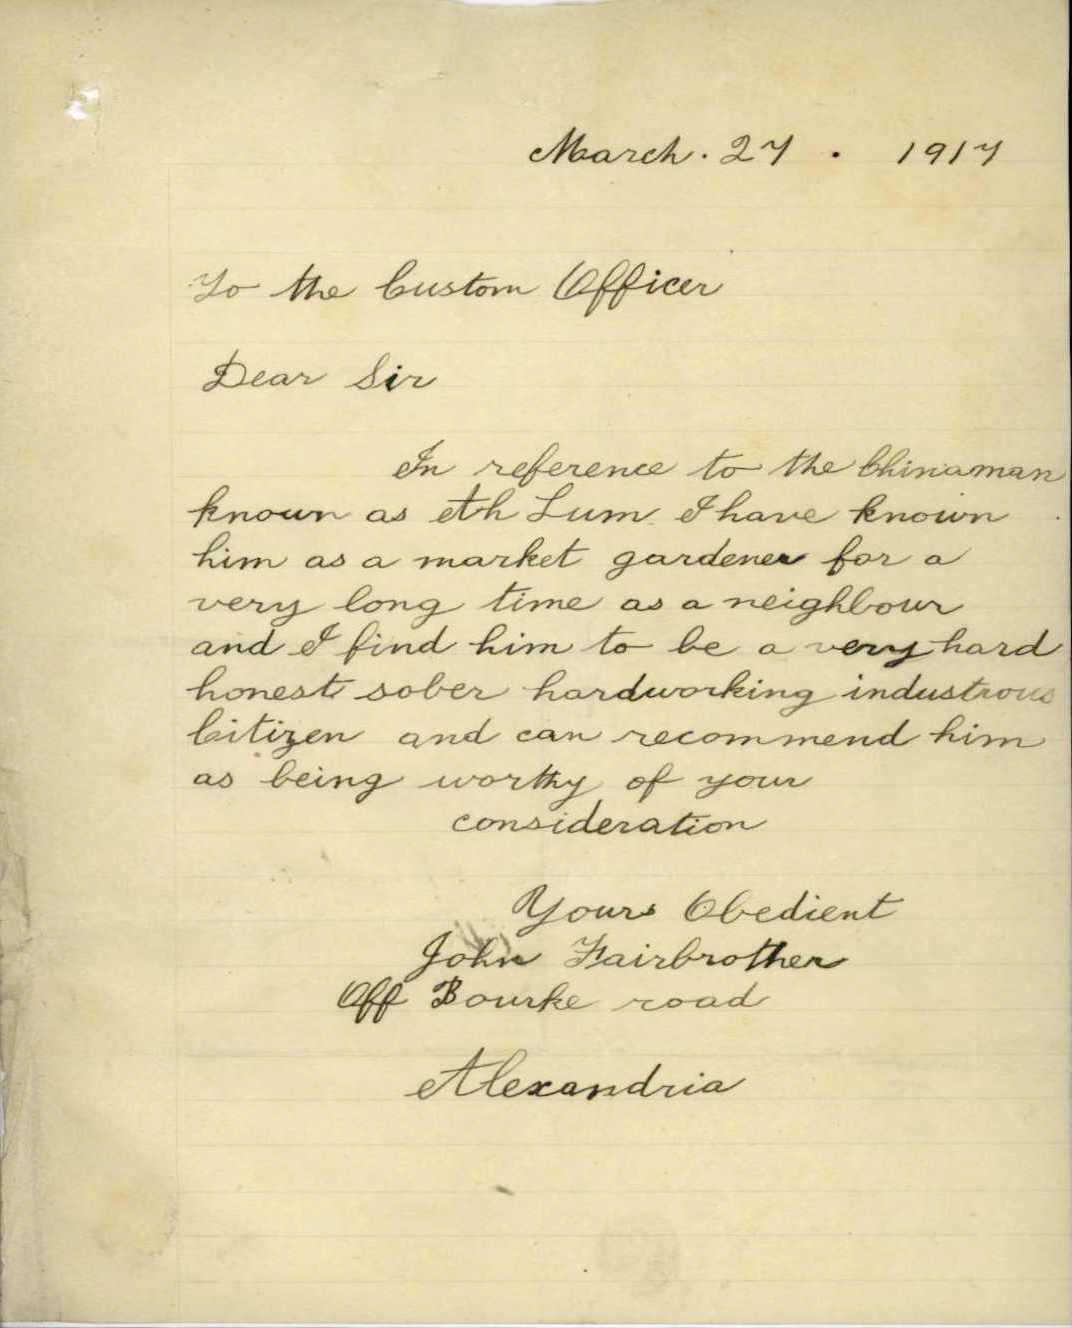 March. 27 . 1917
To the Custom Officer
Dear Sir
In reference to the Chinaman
known as Ah Lum I have known
him as a market gardener for a
very long time as a neighbour
and I find him to be a very hard
honest sober hardworking industrous
Citizen and can recommend him
as being worthy of your
consideration
Yours Obedient
John Fairbrother
Off Bourke road
Alexandria